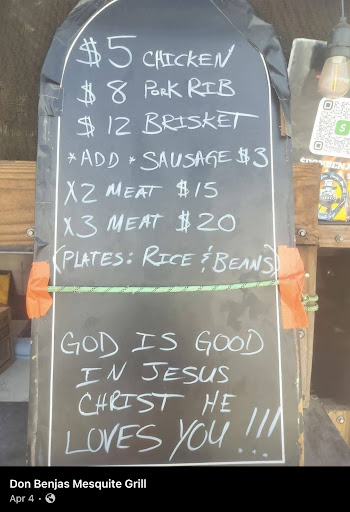 $5 CHICKEN
$8 PORK RIB
$12 BRISKET
*ADD* SAUSAGE $3
X2 MEAT $15
X3 MEAT $20
(PLATES: RICE & BEANS)
GOD IS GOOD
IN JESUS
CHRIST HE
LOVES YOU!!!
Don Benjas Mesquite Grill
Apr 4 ·